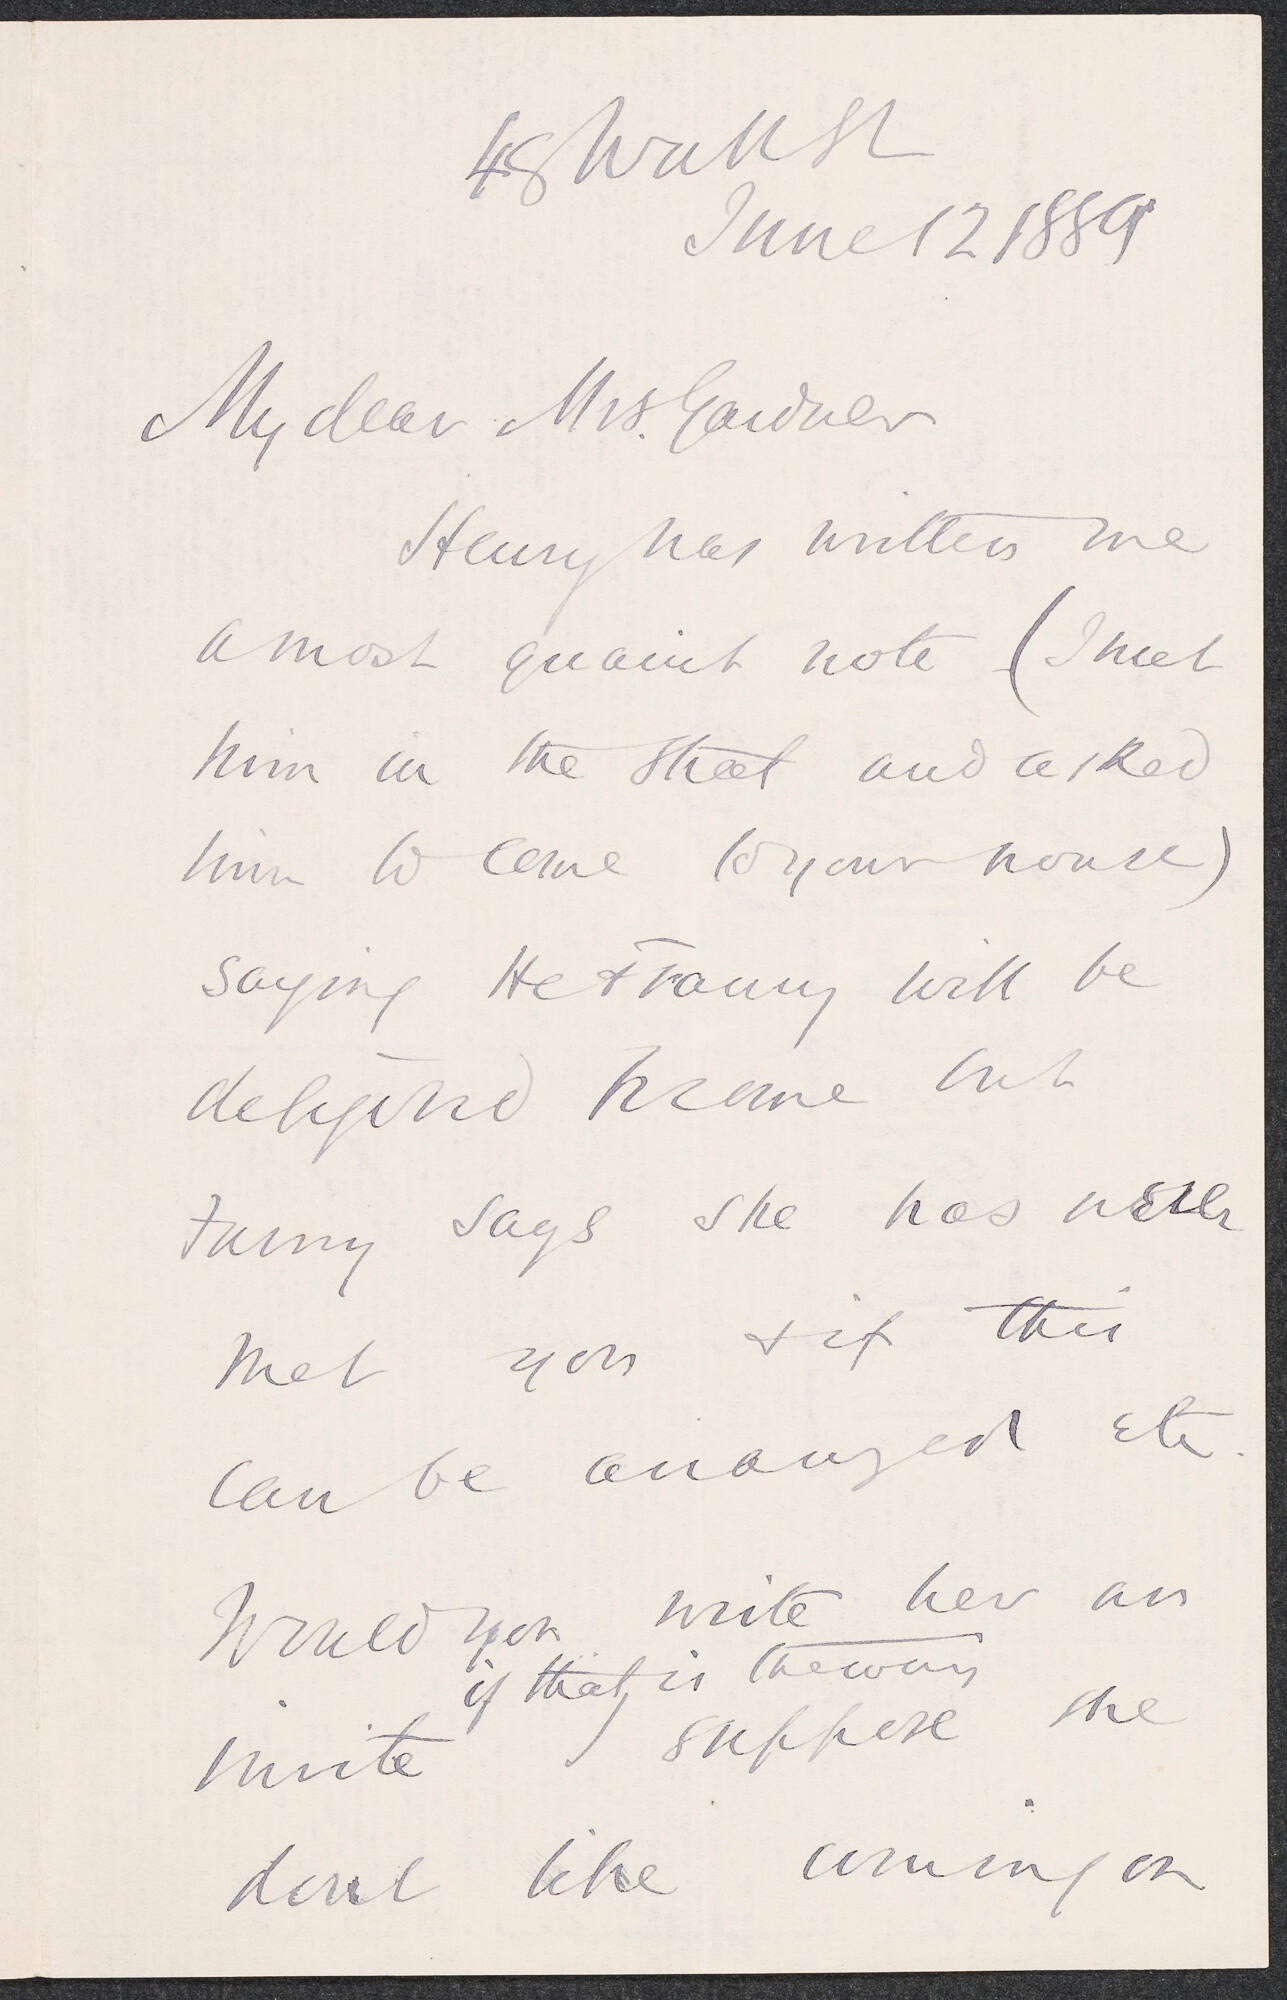 48 Wall St
June 12 1889
My dear Mrs. Gardner
Henry has written me
a most quaint note (I met
him in the street and asked
him to come to your house)
saying He & Fanny will be
delighted to come but
Fanny says she has never
met you & if this
can be arranged etc.
Would you write her an
if that is the way
invite suppose she
dont like coming on